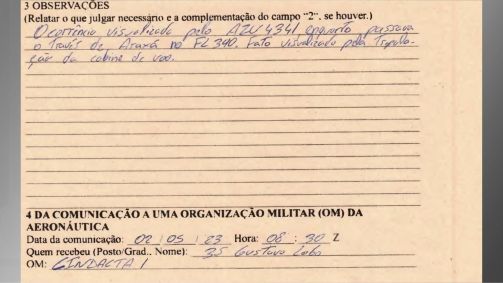 3 OBSERVAÇÕES
(Relatar o que julgar necessário e a complementação do campo "2". se houver.)
Ocorrência visualizada pelo AZU4341 enquanto passava
o través de Araxá no FL 340. Fato visualizado pela Tripula-
ção da cabine de voo.
4 DA COMUNICAÇÃO A UMA ORGANIZAÇÃO MILITAR (OM) DA
AERONÁUTICA
Data da comunicação: 02 / 05 / 23 Hora: 08 : 30 Z
Quem recebeu (Posto/Grad.. Nome): 3S Gustavo Lobo
OM: CINDACTA I